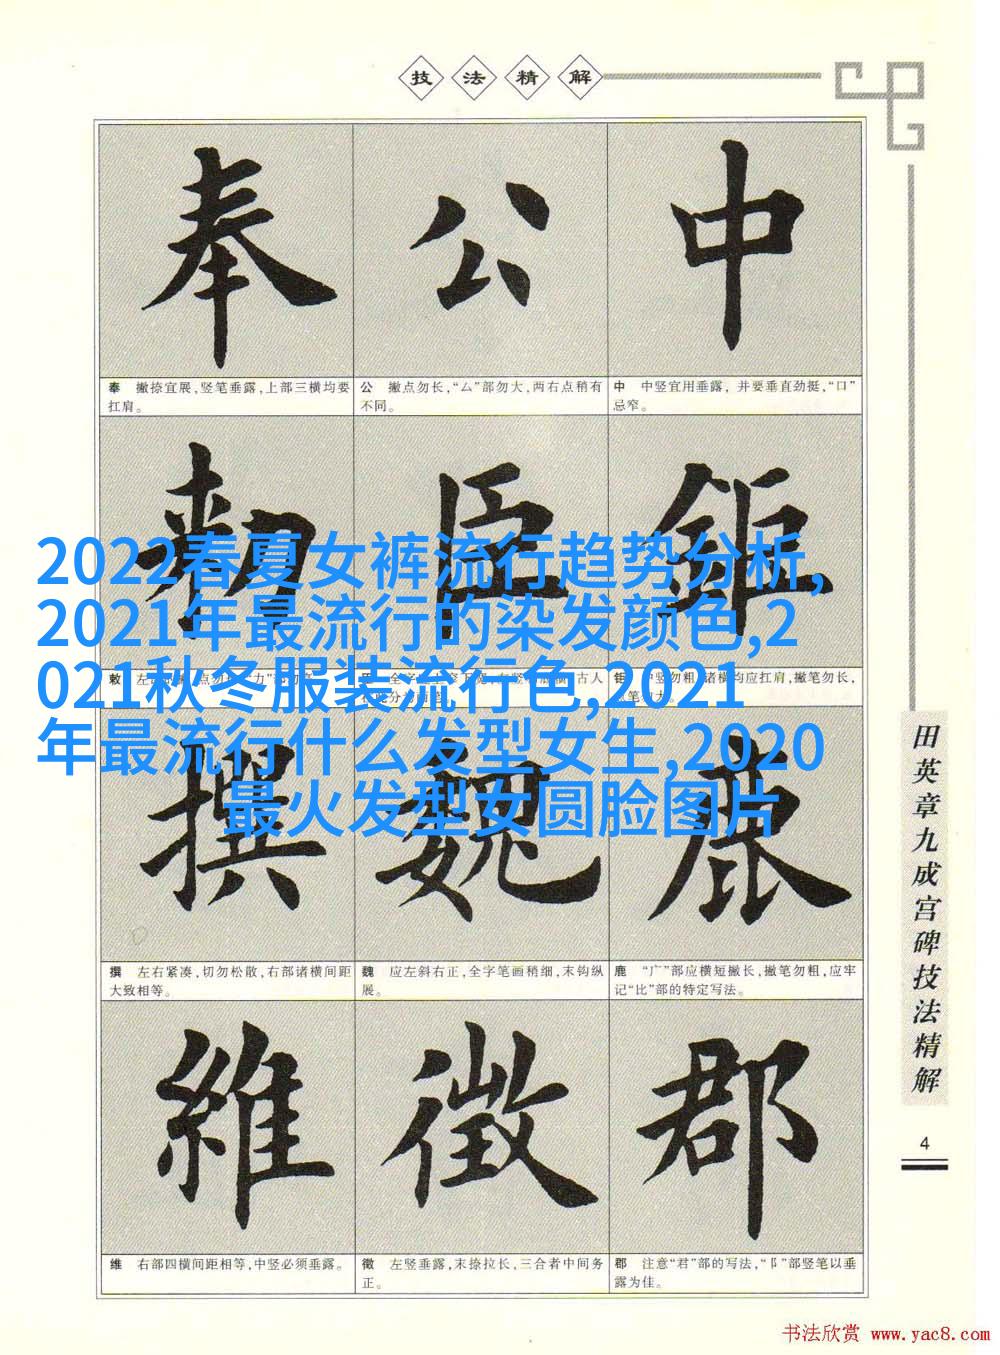 技法精解
奉 公 中
奉 撇捺宜展,竖笔垂露,上部三横均要
扛肩。
公 撇点勿长,“厶”部勿大,两右点稍有
不同。
中 中竖宜用垂露, 并要垂直劲挺,“口”
忌窄。
勑 臣 鉅
2022春夏女裤流行趋势分析,
2021年最流行的染发颜色,2
021秋冬服装流行色,2021
年最流行什么发型女生,2020
最火发型女圆脸图片
撰 魏 鹿
撰 左右紧凑,切勿松散,右部诸横间距
大致相等。
魏 应左斜右正,全字笔画稍细,末钩纵
展。
鹿 “广”部应横短撇长,撇笔勿粗,应牢
记“比”部的特定写法。
維 徵 郡
维 右部四横间距相等,中竖必须垂露。
徵 左竖垂露,末捺拉长,三合者中间务
正。
郡 注意“君”部的写法,“阝”部竖笔以垂
露为佳。
田英章九成宫碑技法精解
4
书法欣赏 www.yac8.com